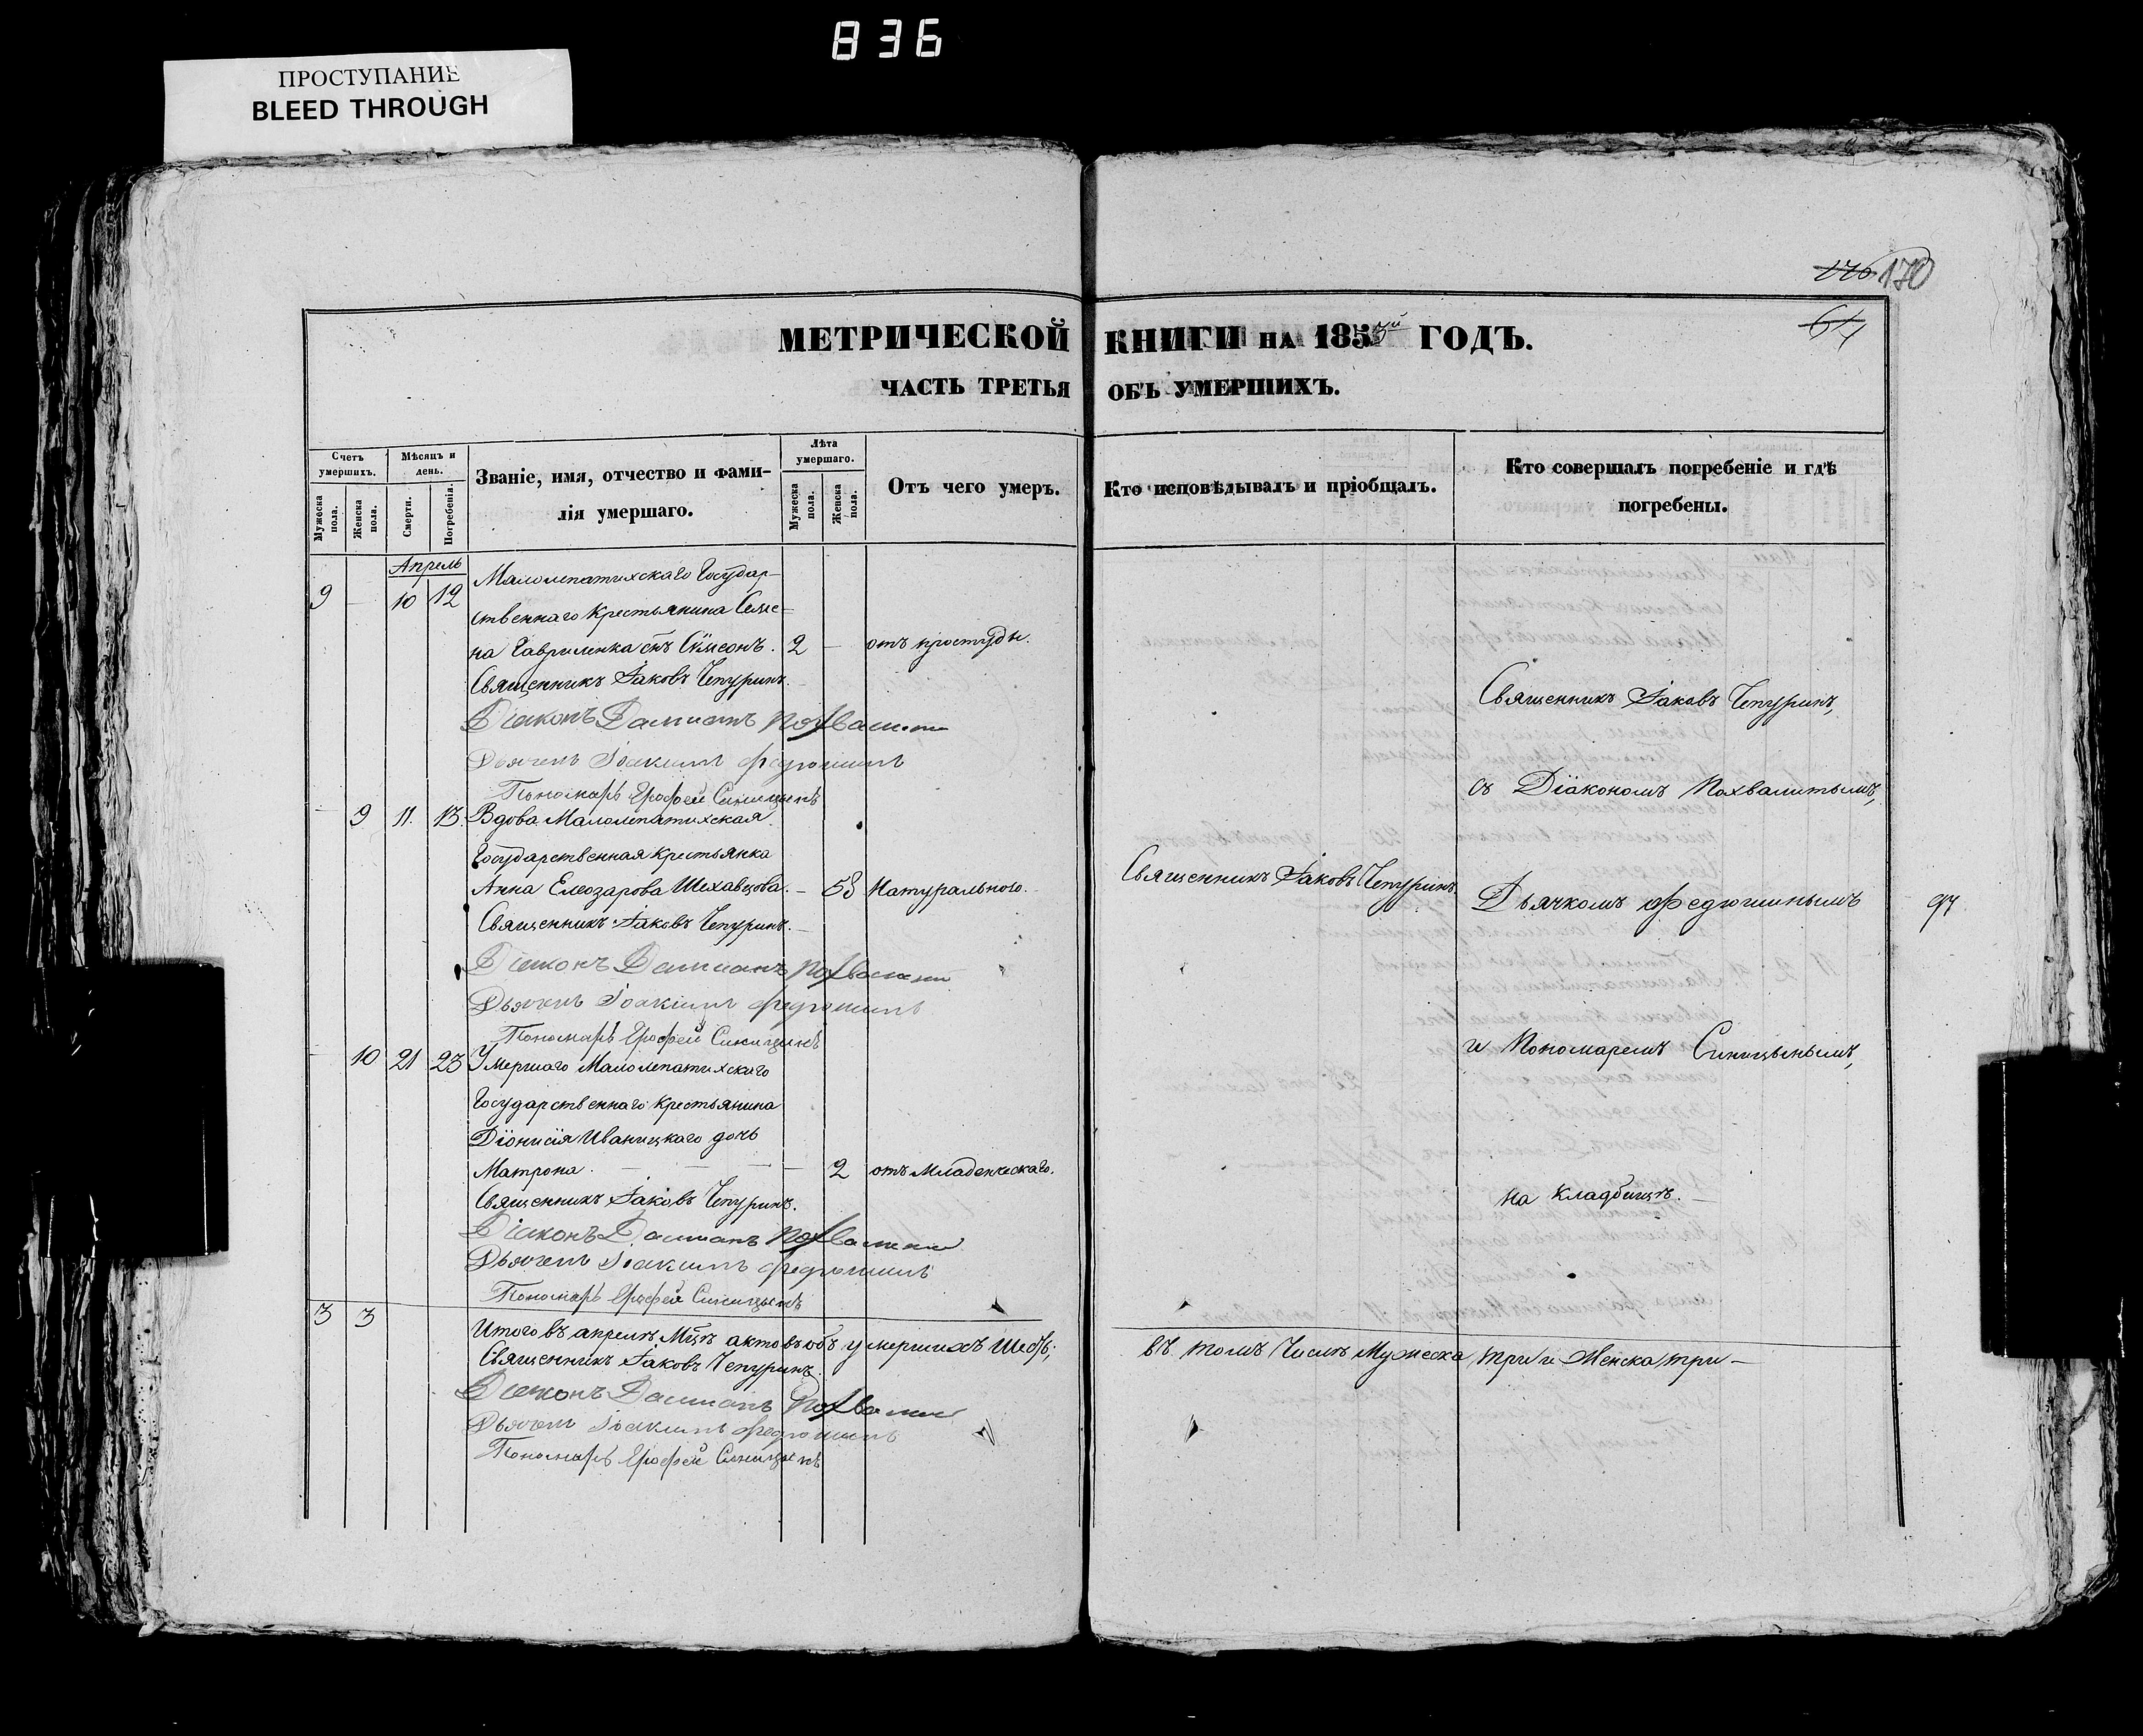 836
ПРОСТУПАНИЕ
BLEED THROUGH
176 170
64
МЕТРИЧЕСКОЙ КНИГИ на 1855й ГОДЪ.
ЧАСТЬ ТРЕТЬЯ ОБЪ УМЕРШИХЪ.
Счетъ умершихъ.
Мужеска пола.
Женска пола.
Мѣсяцъ и день.
Смерти.
Погребенія.
Званіе, имя, отчество и фами-
лія умершаго.
Лѣта умершаго.
Мужеска пола.
Женска пола.
Отъ чего умеръ.
Кто исповѣдывалъ и пріобщалъ.
Кто совершалъ погребеніе и гдѣ
погребены.
Апрель
9 - 10 12 Малолепатихскаго Государ-
ственнаго крестьянина Симе-
на Гавриленка снъ Сѵмеонъ. 2 - отъ простуды.
Священникъ Іаковъ Чепуринъ.
Діаконъ Даміанъ Похвалити
Дьячекъ Іоакимъ Федюшинъ
Пономарь Ерофей Синицынъ
- 9 11. 13. Вдова Малолепатихская
Государственная крестьянка
Анна Елеозарова Шехавцова. - 58 Натурального.
Священникъ Іаковъ Чепуринъ.
Діаконъ Даміанъ Похвалити
Дьячекъ Іоакимъ Федюшинъ
Пономарь Ерофей Синицынъ
- 10 21 23 Умершаго Малолепатихскаго
Государственнаго крестьянина
Діонисія Иваницкаго дочь
Матрона. - 2 отъ младенческаго.
Священникъ Іаковъ Чепуринъ.
Діаконъ Даміанъ Похвалити
Дьячекъ Іоакимъ Федюшинъ
Пономарь Ерофей Синицынъ
3 3
Итого въ апрелѣ Мцѣ актовъ объ умершихъ Шесть;
Священникъ Іаковъ Чепуринъ.
Діаконъ Даміанъ Похвалити
Дьячекъ Іоакимъ Федюшинъ
Пономарь Ерофей Синицынъ
Священникъ Іаковъ Чепуринъ
Священникъ Іаковъ Чепуринъ,
съ Діакономъ Похвалитымъ,
Дьячкомъ Федюшинымъ
97
и Пономаремъ Синицынымъ,
на кладбищѣ.
въ томъ Числѣ Мужеска три и Женска три -